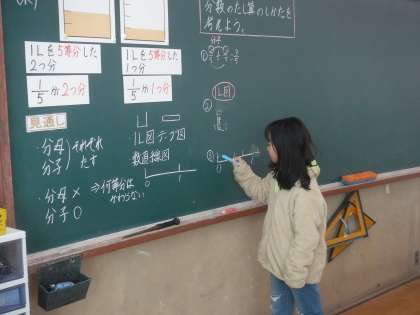 分数のたし算のしかたを
考えよう。
1Lを5等分した
2つ分
1/5が2つ分
1Lを5等分した
1つ分
1/5が1つ分
見通し
・分母 それぞれ
分子 たす
・分母× ⇒何等分は
かわらない
分子○
1L図 テープ図
数直線図
0 1
①
1L図
②
③
0 1